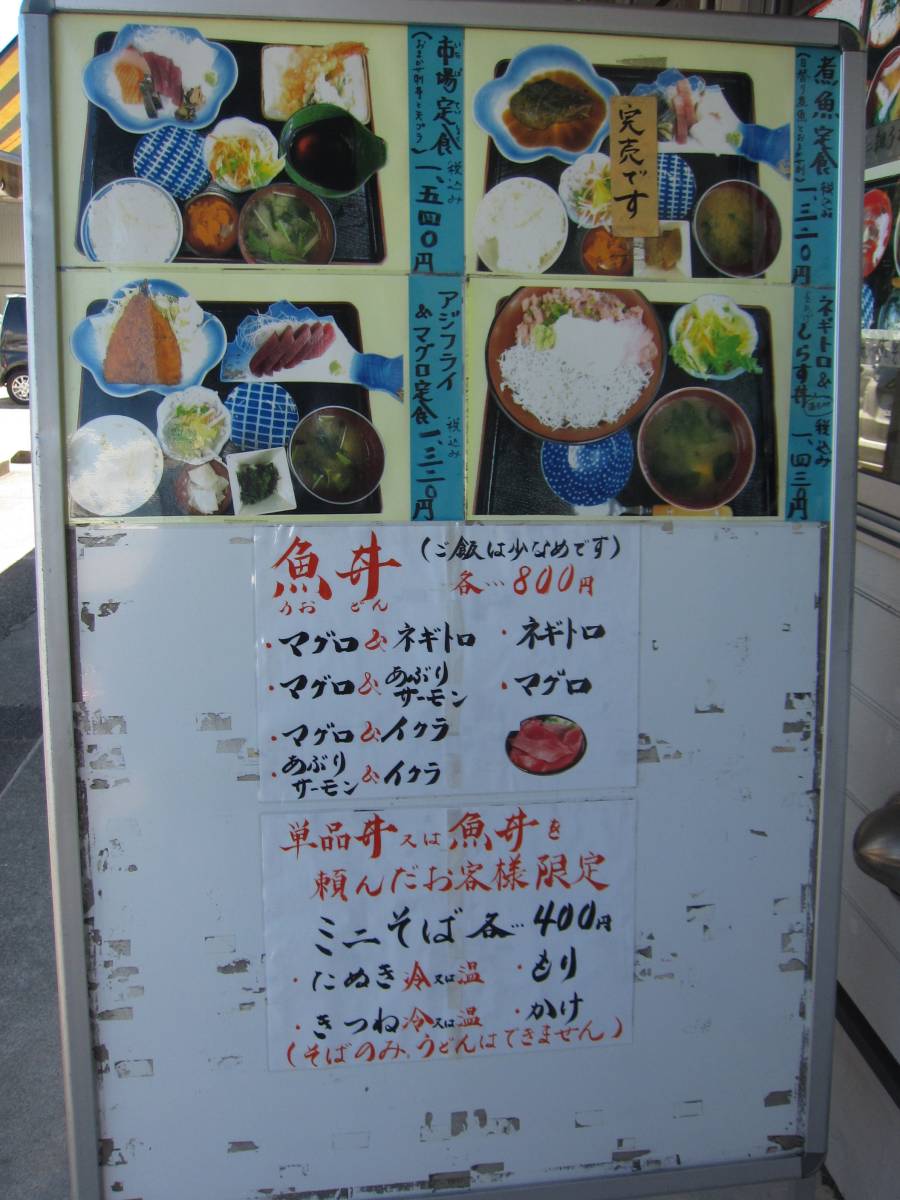 市場定食
いちばていしょく
(おまかせ刺身と天プラ)
税込み
一、五四〇円
煮魚定食
税込み
一、三二〇円
完売です
アジフライ
&マグロ定食
税込み
一、三二〇円
ネギトロ&
しらす丼
税込み
一、四三〇円
魚丼
うおどん
(ご飯は少なめです)
各…800円
・マグロ&ネギトロ
・ネギトロ
・マグロ&あぶりサーモン
・マグロ
・マグロ&イクラ
・あぶりサーモン&イクラ
単品丼又は魚丼を
頼んだお客様限定
ミニそば各…400円
・たぬき冷又は温
・もり
・きつね冷又は温
・かけ
(そばのみ、うどんはできません)